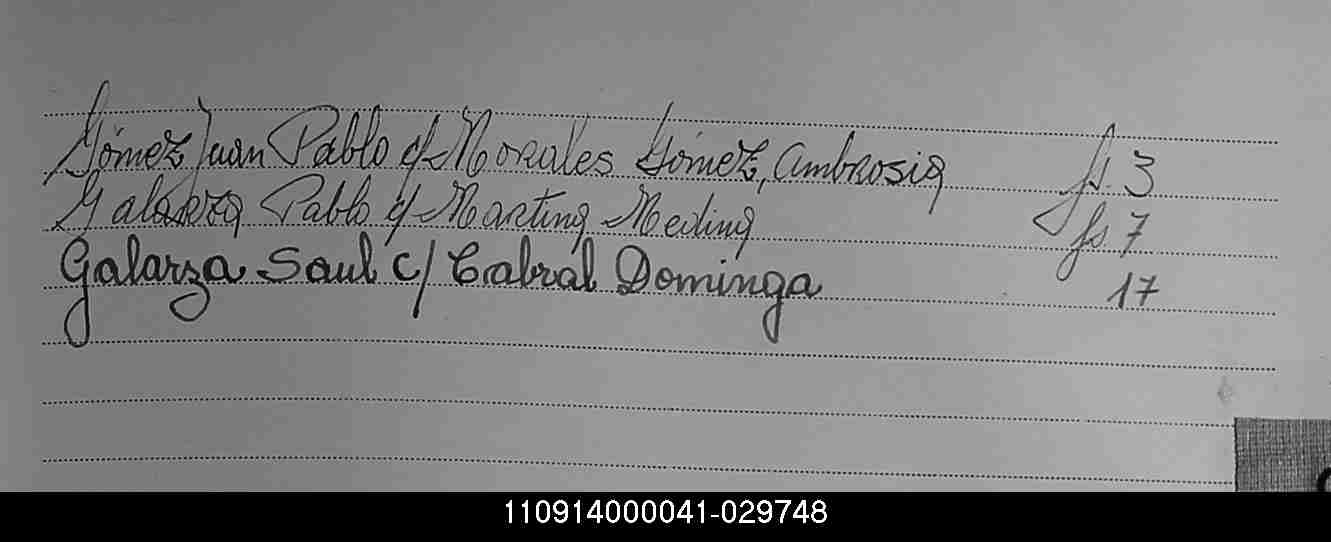 Gómez Juan Pablo c/ Morales Gómez, Ambrosia fs. 3
Galarza Pablo c/ Martina Medina fs. 7
Galarza Saul c/ Cabral Dominga 17
110914000041-029748